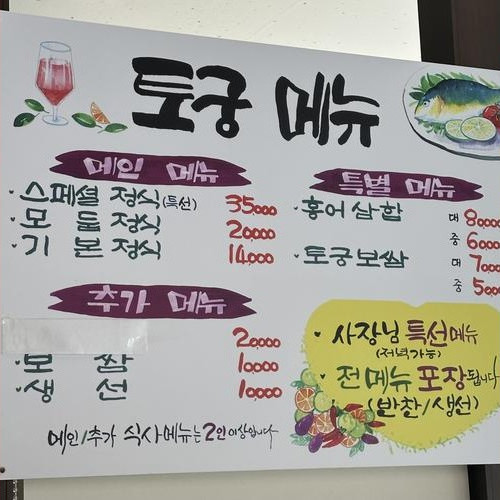 토궁 메뉴
메인 메뉴
스페셜 정식(특선) 35,000
모 듬 정식 20,000
기 본 정식 14,000
추가 메뉴
20,000
보 쌈 10,000
생 선 10,000
메인/추가 식사메뉴는 2인이상입니다
특별 메뉴
홍어삼합 대
중
토궁보쌈 대
중
사장님 특선메뉴
(저녁가능)
전메뉴 포장됩니다
(반찬/생선)